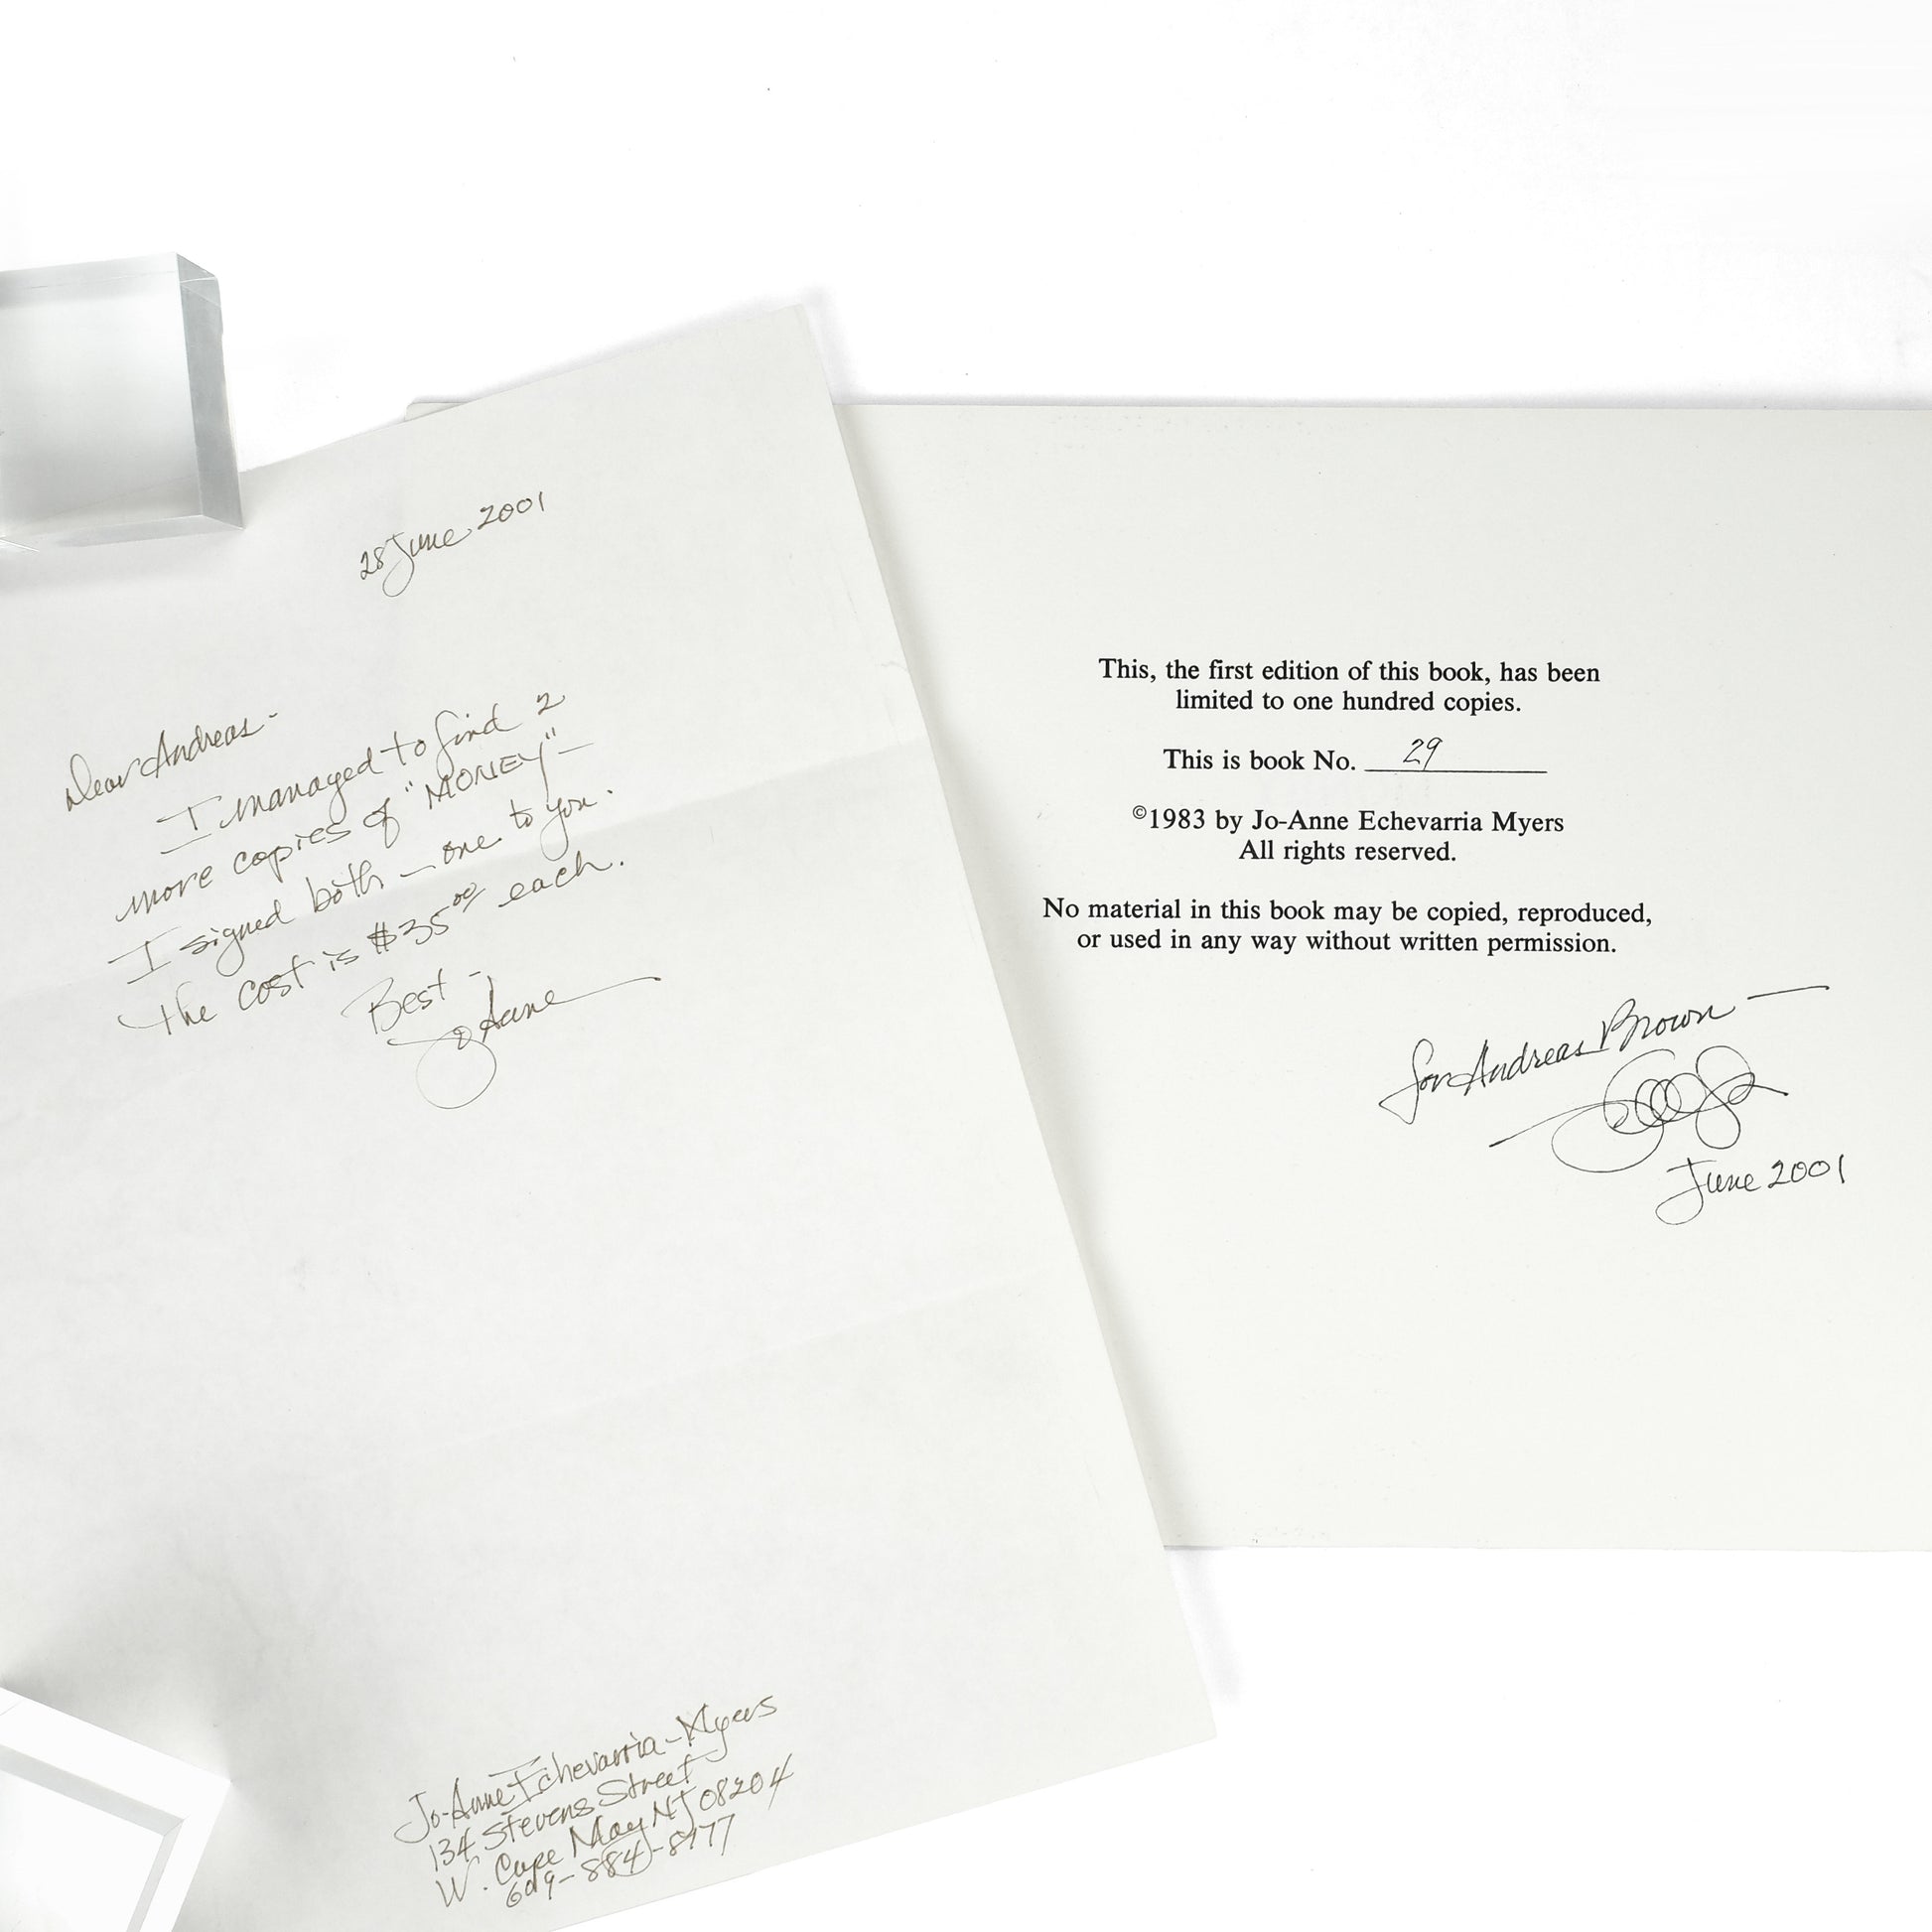 28 June 2001
Dear Andreas-
I managed to find 2
more copies of "MONEY"—
I signed both — one to you.
The cost is $35.00 each.
Best -
Jo Anne
Jo-Anne Echevarria-Myers
134 Stevens Street
W. Cape May NJ 08204
609-884-8977
This, the first edition of this book, has been
limited to one hundred copies.
This is book No. 29
©1983 by Jo-Anne Echevarria Myers
All rights reserved.
No material in this book may be copied, reproduced,
or used in any way without written permission.
for Andreas Brown —
June 2001